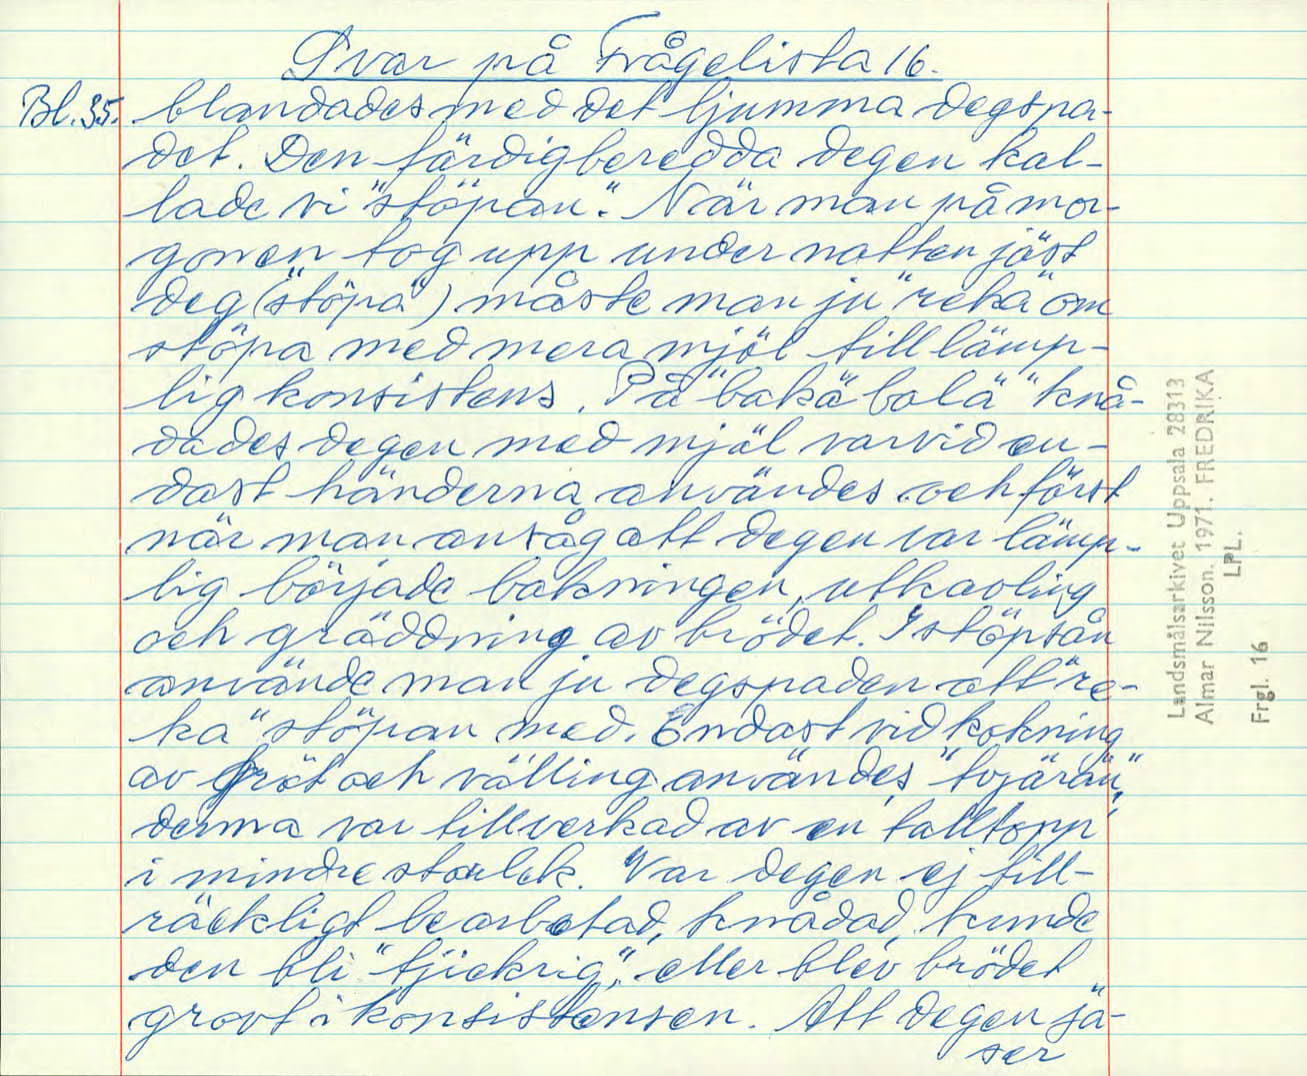 Svar på Frågelista 16.
Bl. 35. blandades med det ljumma degspa-
det. Den färdigberedda degen kal-
lade vi "stöpan". När man på mor-
gonen tog upp under natten jäst
deg ("stöpa") måste man ju "reka" om
stöpa med mera mjöl till lämp-
lig konsistens. På "bakä bolä" knå-
dades degen med mjöl varvid en-
dast händerna användes och först
när man ansåg att degen var lämp-
lig började bakningen, utkavling
och gräddning av brödet. I stöpsån
använde man ju degspaden att "re-
ka" stöpan med. Endast vid kokning
av gröt och välling användes "tvjärän",
denna var tillverkad av en talltopp
i mindre storlek. Var degen ej till-
räckligt bearbetad, knådad, kunde
den bli "tjickrig", eller blev brödet
grovt i konsistensen. Att degen jä-
ser
Landsmålsarkivet Uppsala 28313
Almar Nilsson. 1971. FREDRIKA
LPL.
Frgl. 16